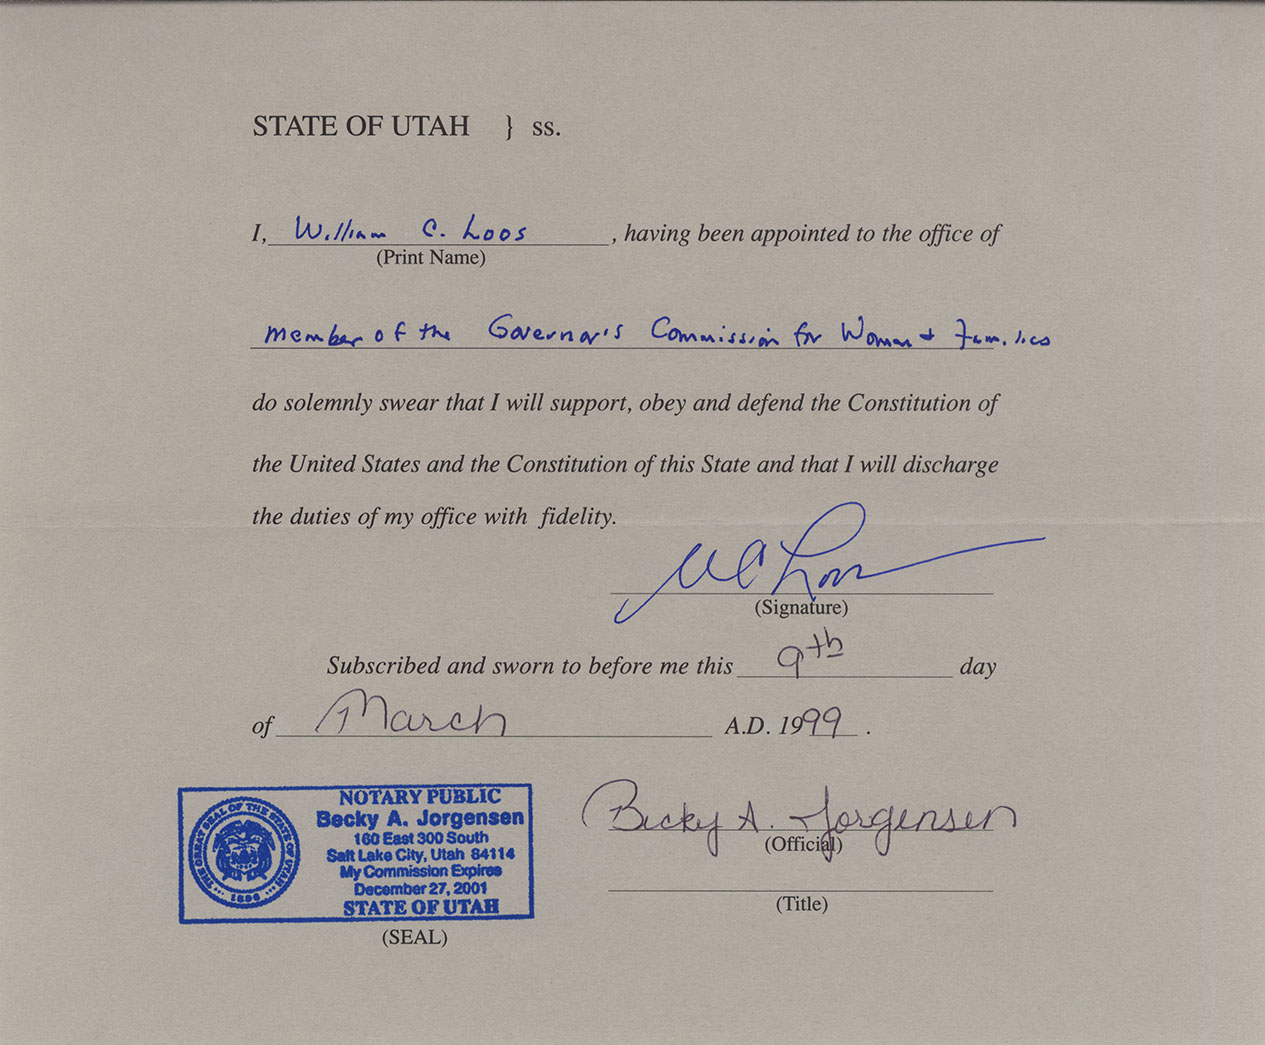 STATE OF UTAH } ss.
I, William C. Loos , having been appointed to the office of
(Print Name)
member of the Governor's Commission for Women & Families
do solemnly swear that I will support, obey and defend the Constitution of
the United States and the Constitution of this State and that I will discharge
the duties of my office with fidelity.
WC Loos
(Signature)
Subscribed and sworn to before me this 9th day
of March A.D. 1999 .
NOTARY PUBLIC
Becky A. Jorgensen
160 East 300 South
Salt Lake City, Utah 84114
My Commission Expires
December 27, 2001
STATE OF UTAH
THE GREAT SEAL OF THE STATE OF UTAH
1896
(SEAL)
Becky A. Jorgensen
(Official)
(Title)